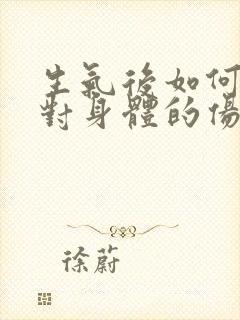 生氣後如何
對身體的傷
徐蔚